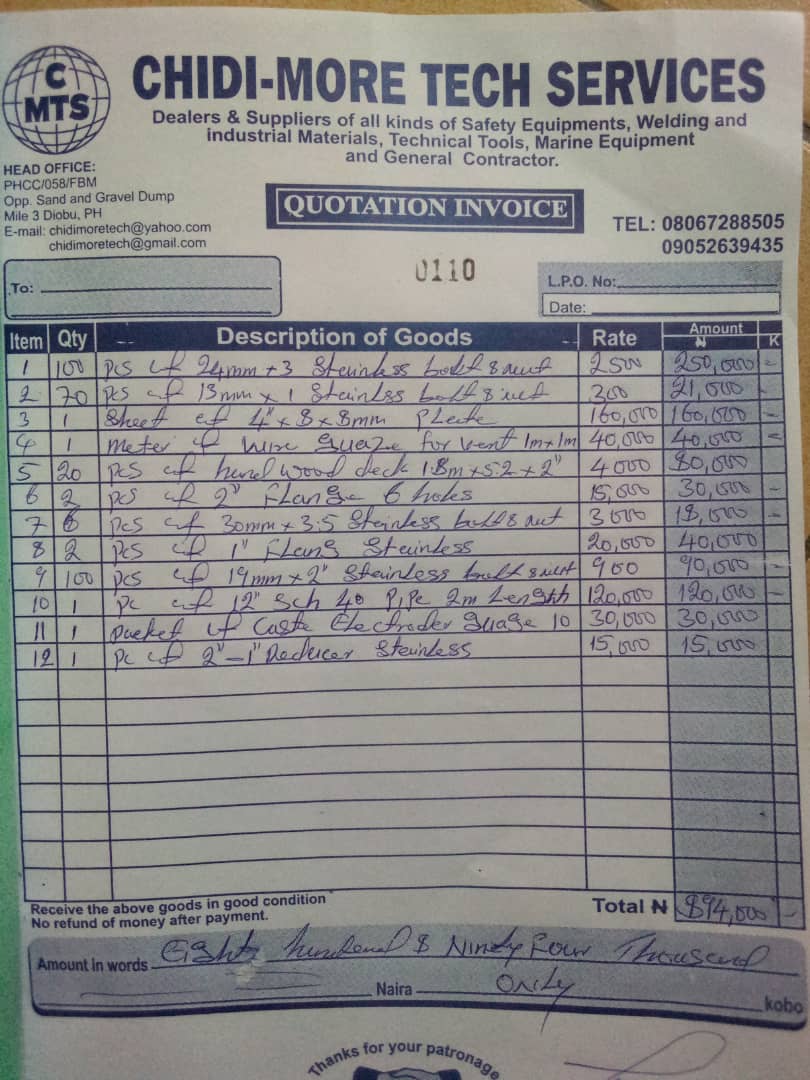 C
MTS
CHIDI-MORE TECH SERVICES
Dealers & Suppliers of all kinds of Safety Equipments, Welding and
industrial Materials, Technical Tools, Marine Equipment
and General Contractor.
HEAD OFFICE:
PHCC/058/FBM
Opp. Sand and Gravel Dump
Mile 3 Diobu, PH
E-mail: chidimoretech@yahoo.com
chidimoretech@gmail.com
QUOTATION INVOICE
TEL: 08067288505
09052639435
0110
To:
L.P.O. No:
Date:
Item Qty Description of Goods Rate Amount ₦ K
1 100 pcs of 24mm + 3 Stainless bolt & nut 2500 250,000 =
2 70 pcs of 13mm x 1 Stainlss bolt & nut 300 21,000 -
3 1 Sheet of 4" x 8 x 8mm Plate 160,000 160,000 -
4 1 meter of wire guaze for vent 1m x 1m 40,000 40,000 =
5 20 pcs of hard wood deck 1.8m + 5.2 + 2" 4000 80,000
6 2 pcs of 2" Flange 6 holes 15,000 30,000 -
7 6 pcs of 30mm + 3.5 Stainless bolt & nut 3000 18,000 -
8 2 Pcs of 1" Flang Stainless 20,000 40,000
9 100 pcs of 19mm x 2" Stainless bolt & nut 900 90,000 -
10 1 pc of 12" Sch 40 Pipe 2m Length 120,000 120,000 -
11 1 packet of Caste Electroder guage 10 30,000 30,000 -
12 1 pc of 2" - 1" Reducer Stainless 15,000 15,000 -
Receive the above goods in good condition
No refund of money after payment.
Total ₦ 894,000 -
Amount in words Eight hundred & Ninety Four Thousand
Naira Only kobo
Thanks for your patronage